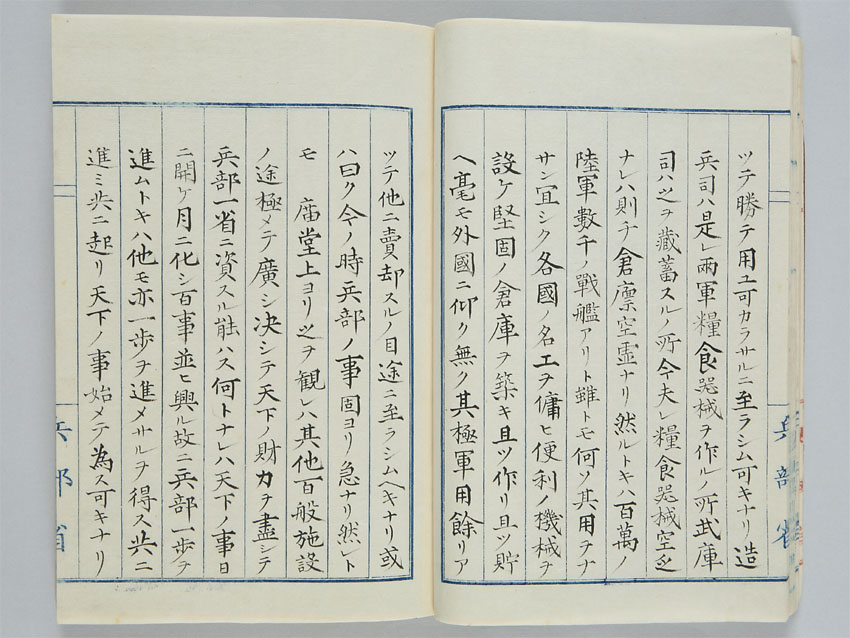 ツテ勝テ用ユ可カラサルニ至ラシム可キナリ造
兵司ハ是レ兩軍糧食器械ヲ作ルノ所武庫
司ハ之ヲ藏蓄スルノ所今夫レ糧食器械空乏
ナレハ則チ倉廩空虚ナリ然ルトキハ百萬ノ
陸軍數千ノ戰艦アリト雖トモ何ソ其用ヲナ
サン宜シク各國ノ名工ヲ傭ヒ便利ノ機械ヲ
設ケ堅固ノ倉庫ヲ築キ且ツ作リ且ツ貯
ヘ毫モ外國ニ仰ク無ク其極軍用餘リア
ツテ他ニ賣却スルノ目途ニ至ラシムヘキナリ或
ハ曰ク今ノ時兵部ノ事固ヨリ急ナリ然レト
モ 庿堂上ヨリ之ヲ観レハ其他百般施設
ノ途極メテ廣シ決シテ天下ノ財力ヲ盡シテ
兵部一省ニ資スル能ハス何トナレハ天下ノ事日
ニ開ケ月ニ化シ百事並ヒ興ル故ニ兵部一歩ヲ
進ムトキハ他モ亦一歩ヲ進メサルヲ得ス共ニ
進ミ共ニ起リ天下ノ事始メテ為ス可キナリ
兵部省
兵部省